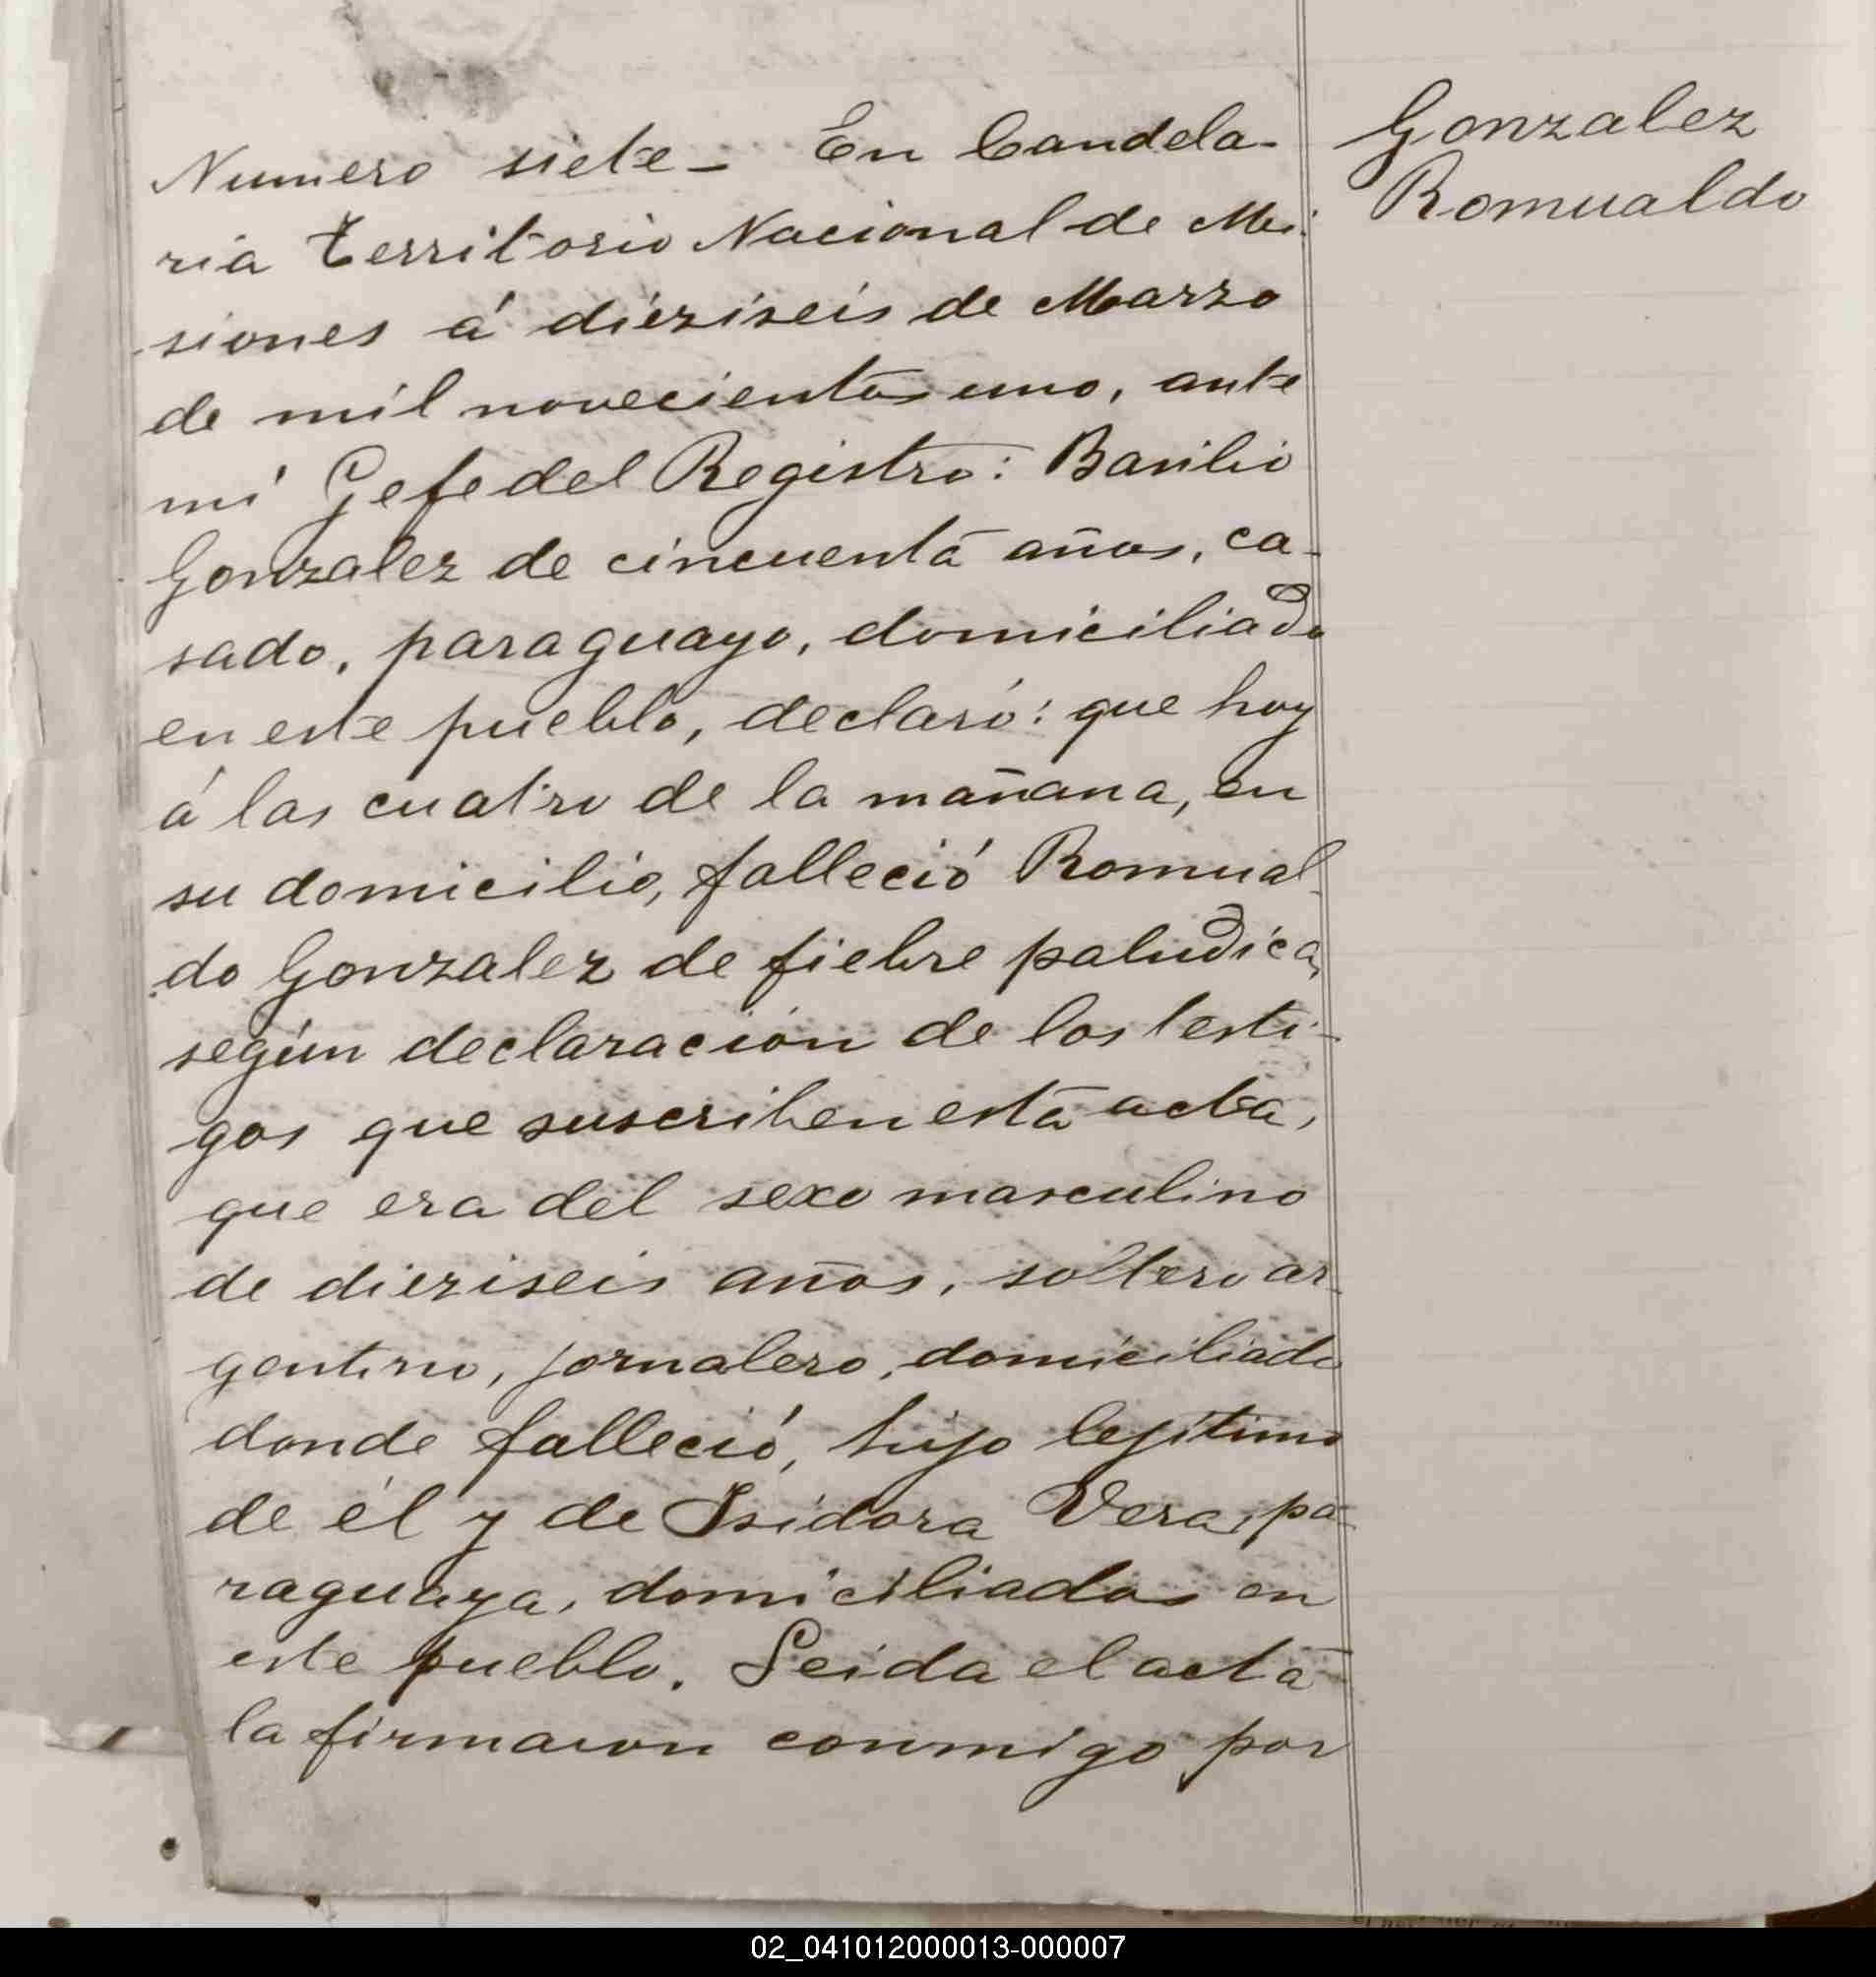 Gonzalez
Romualdo
Numero siete - En Candela-
ria Territorio Nacional de Mi-
siones á dieziseis de Marzo
de mil novecientos uno, ante
mi Gefe del Registro: Basilio
Gonzalez de cincuenta años, ca-
sado, paraguayo, domiciliado
en este pueblo, declaró: que hoy
á las cuatro de la mañana, en
su domicilio, falleció Romual-
do Gonzalez de fiebre paludica,
según declaración de los testi-
gos que suscriben esta acta,
que era del sexo masculino
de dieziseis años, soltero ar-
gentino, jornalero, domiciliado
donde falleció, hijo lejítimo
de él y de Isidora Vera, pa-
raguaya, domiciliados en
este pueblo. Leida el acta
la firmaron conmigo por
02_041012000013-000007